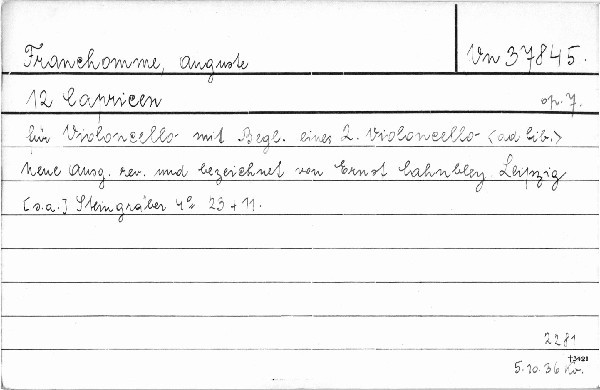 Franchomme, Auguste
Vn 37845.
12 Capricen op. 7.
für Violoncello mit Begl. eines 2. Violoncello <ad lib.>
Neue Ausg. rev. und bezeichnet von Ernst Cahnbley. Leipzig
[s.a.] Steingräber 4° 23 + 11.
2281
5.10.36 Kv.